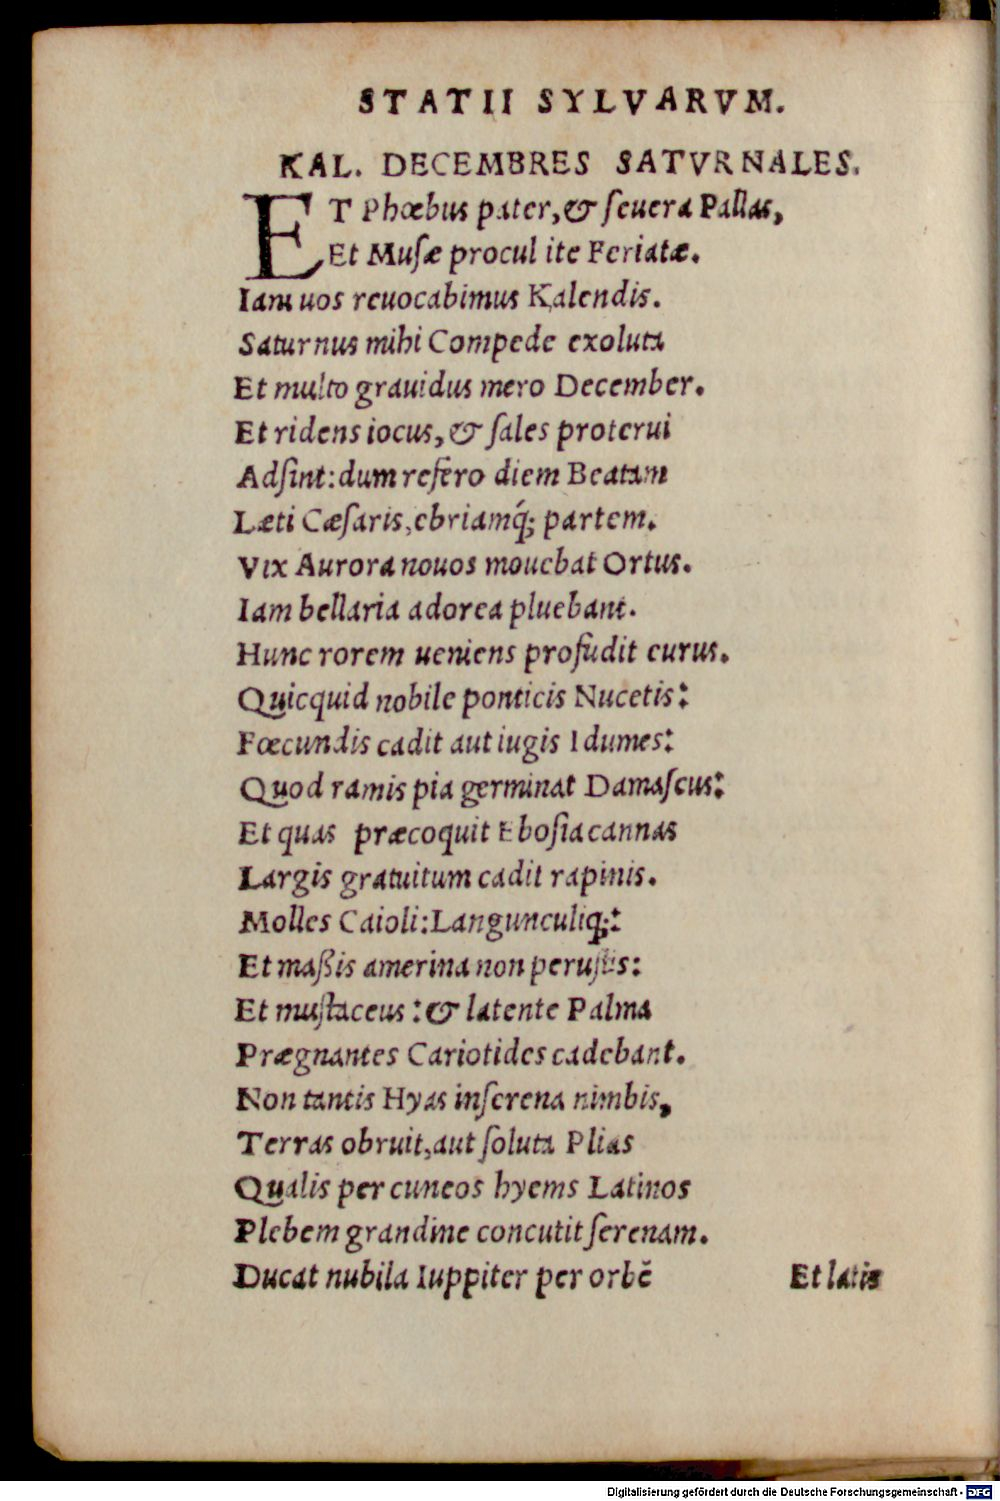 STATII SYLVARVM.
KAL. DECEMBRES SATVRNALES.
ET Phœbus pater, & seuera Pallas,
Et Musæ procul ite Feriatæ.
Iam uos reuocabimus Kalendis.
Saturnus mihi Compede exoluta
Et multo grauidus mero December.
Et ridens iocus, & sales proterui
Adsint: dum refero diem Beatam
Læti Cæsaris, ebriamq́; partem.
Vix Aurora nouos mouebat Ortus.
Iam bellaria adorea pluebant.
Hunc rorem ueniens profudit eurus.
Quicquid nobile ponticis Nucetis:
Fœcundis cadit aut iugis Idumes:
Quod ramis pia germinat Damascus:
Et quas præcoquit Ebosia cannas
Largis gratuitum cadit rapinis.
Molles Caioli: Langunculiq;:
Et maßis amerina non perustis:
Et mustaceus: & latente Palma
Prægnantes Cariotides cadebant.
Non tantis Hyas inserena nimbis,
Terras obruit, aut soluta Plias
Qualis per cuneos hyems Latinos
Plebem grandine concutit serenam.
Ducat nubila Iuppiter per orbē
Et latis
Digitalisierung gefördert durch die Deutsche Forschungsgemeinschaft - DFG